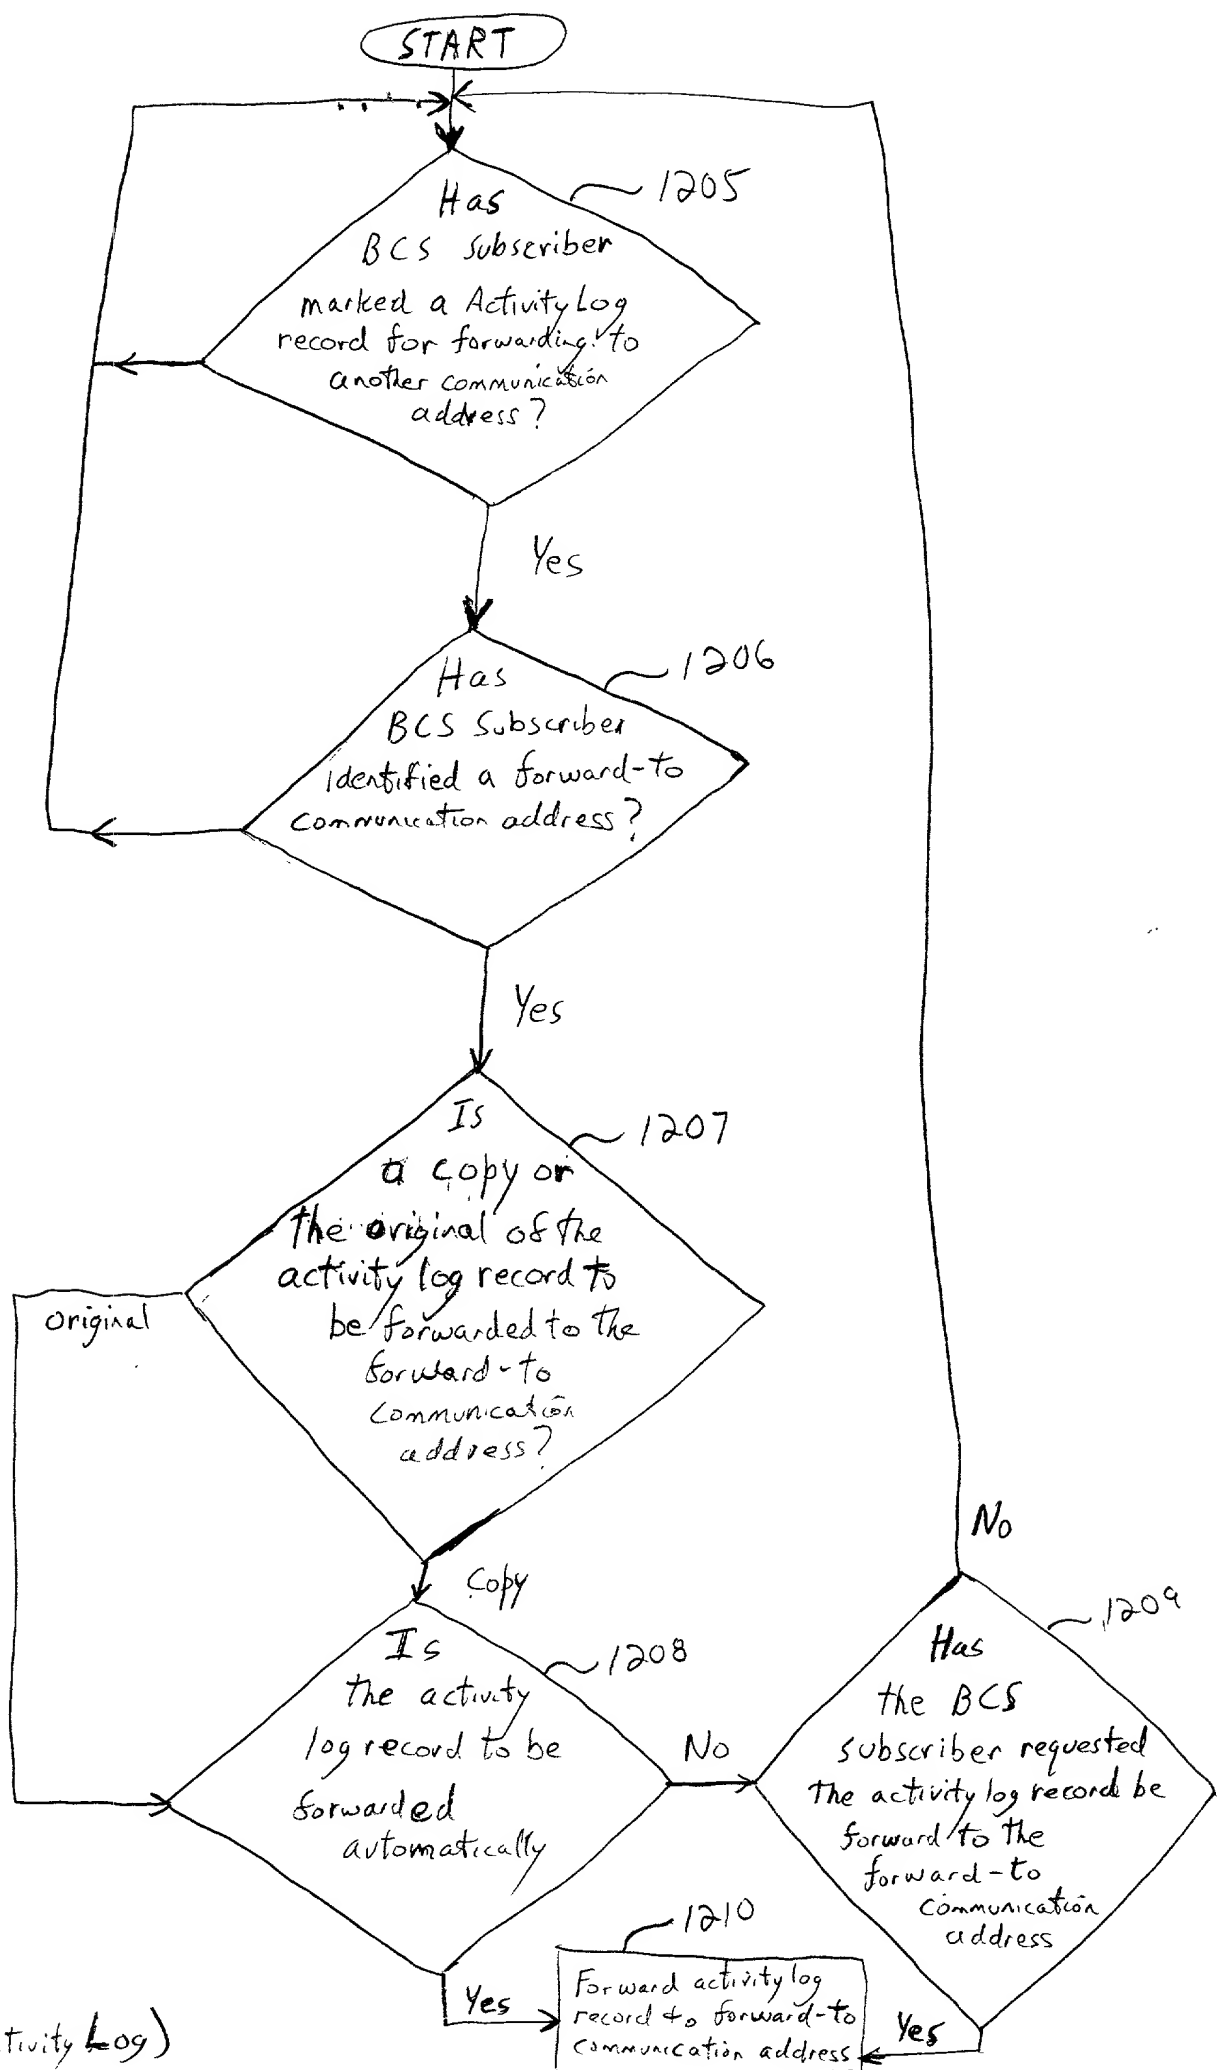 START
1205
Has
BCS subscriber
marked a Activity Log
record for forwarding to
another communication
address?
Yes
1206
Has
BCS Subscriber
identified a forward-to
communication address?
Yes
1207
Is
a copy or
the original of the
activity log record to
be forwarded to the
forward-to
communication
address?
original
Copy
No
1208
Is
the activity
log record to be
forwarded
automatically
No
1209
Has
the BCS
subscriber requested
the activity log record be
forward to the
forward-to
communication
address
1210
Yes
Forward activity log
record to forward-to
communication address
Yes
tivity Log)